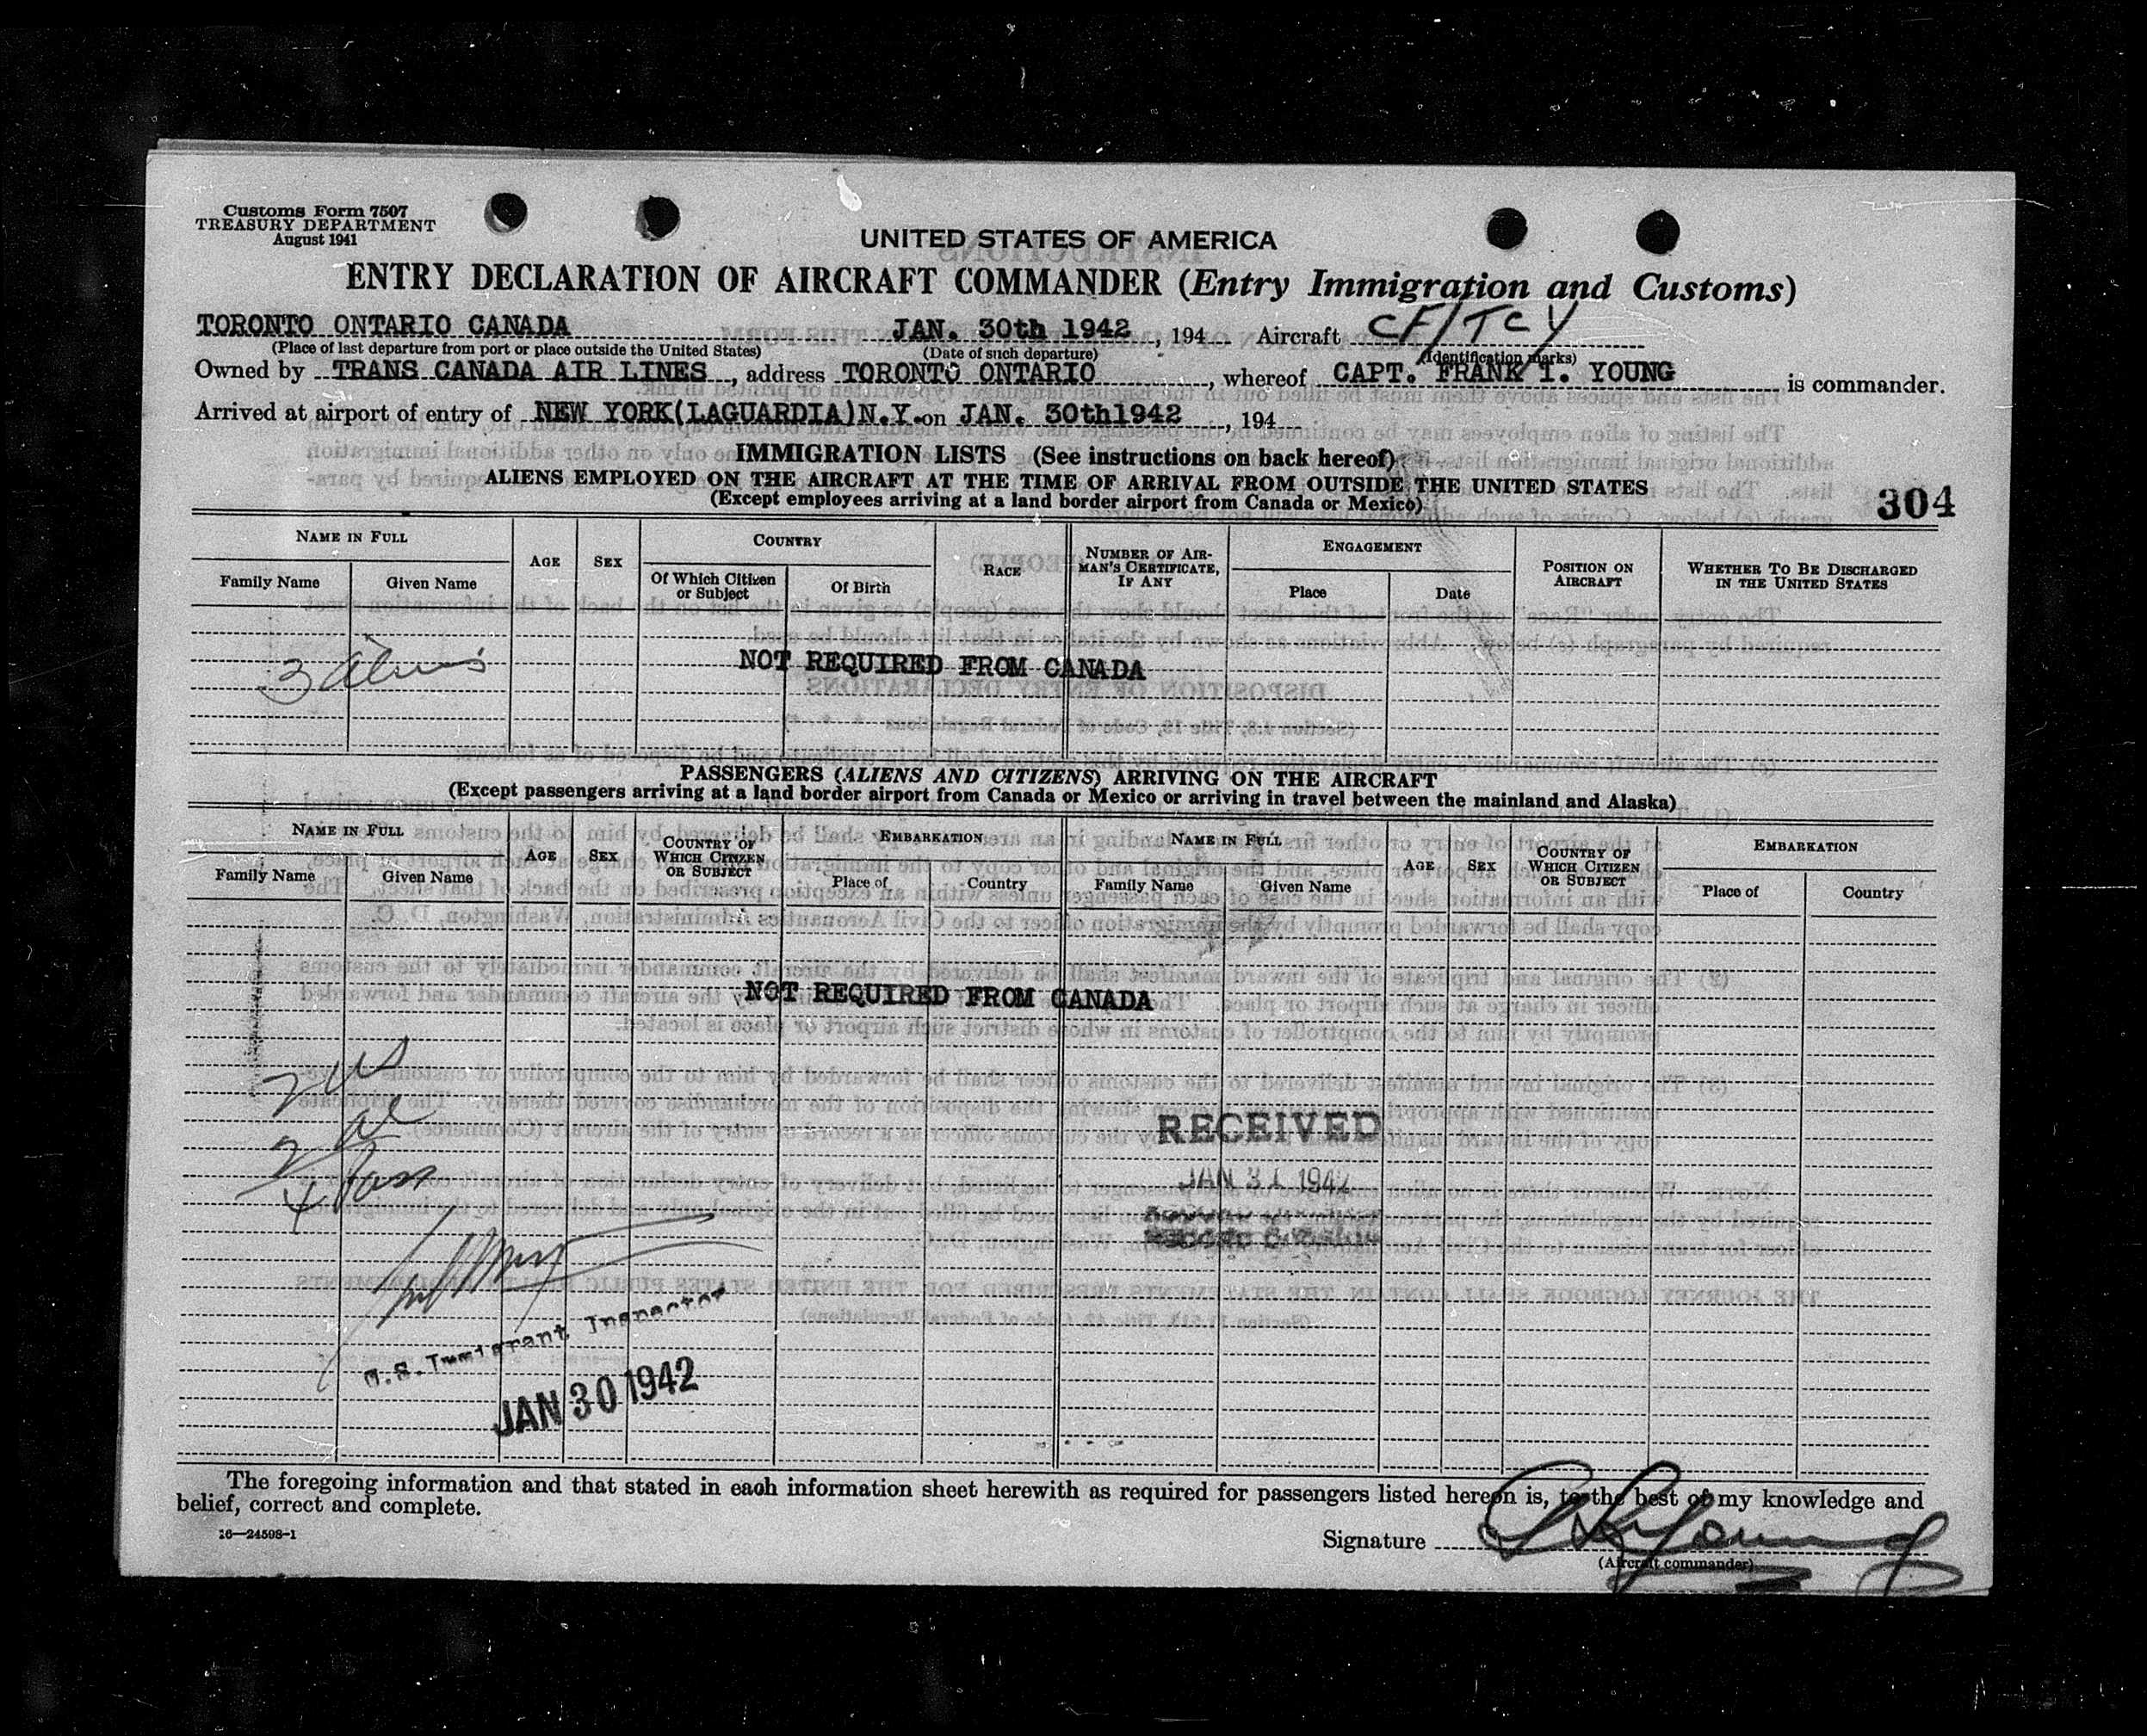 Customs Form 7507
TREASURY DEPARTMENT
August 1941
UNITED STATES OF AMERICA
ENTRY DECLARATION OF AIRCRAFT COMMANDER (Entry Immigration and Customs)
TORONTO ONTARIO CANADA JAN. 30th 1942, 194 Aircraft CF/TCY
(Place of last departure from port or place outside the United States) (Date of such departure) (Identification marks)
Owned by TRANS CANADA AIR LINES, address TORONTO ONTARIO, whereof CAPT. FRANK I. YOUNG is commander.
Arrived at airport of entry of NEW YORK(LAGUARDIA)N.Y. on JAN. 30th1942, 194
IMMIGRATION LISTS (See instructions on back hereof)
ALIENS EMPLOYED ON THE AIRCRAFT AT THE TIME OF ARRIVAL FROM OUTSIDE THE UNITED STATES
(Except employees arriving at a land border airport from Canada or Mexico)
304
NAME IN FULL AGE SEX COUNTRY RACE NUMBER OF AIRMAN'S CERTIFICATE, IF ANY ENGAGEMENT POSITION ON AIRCRAFT WHETHER TO BE DISCHARGED IN THE UNITED STATES
Family Name Given Name Of Which Citizen or Subject Of Birth Place Date
3 aliens
NOT REQUIRED FROM CANADA
PASSENGERS (ALIENS AND CITIZENS) ARRIVING ON THE AIRCRAFT
(Except passengers arriving at a land border airport from Canada or Mexico or arriving in travel between the mainland and Alaska)
NAME IN FULL AGE SEX COUNTRY OF WHICH CITIZEN OR SUBJECT EMBARKATION NAME IN FULL AGE SEX COUNTRY OF WHICH CITIZEN OR SUBJECT EMBARKATION
Family Name Given Name Place of Country Family Name Given Name Place of Country
NOT REQUIRED FROM CANADA
2 US
2 al
4 Pass
RECEIVED
JAN 31 1942
U.S. Immigrant Inspector
JAN 30 1942
The foregoing information and that stated in each information sheet herewith as required for passengers listed hereon is, to the best of my knowledge and
belief, correct and complete.
16—24598-1
Signature
(Aircraft commander)